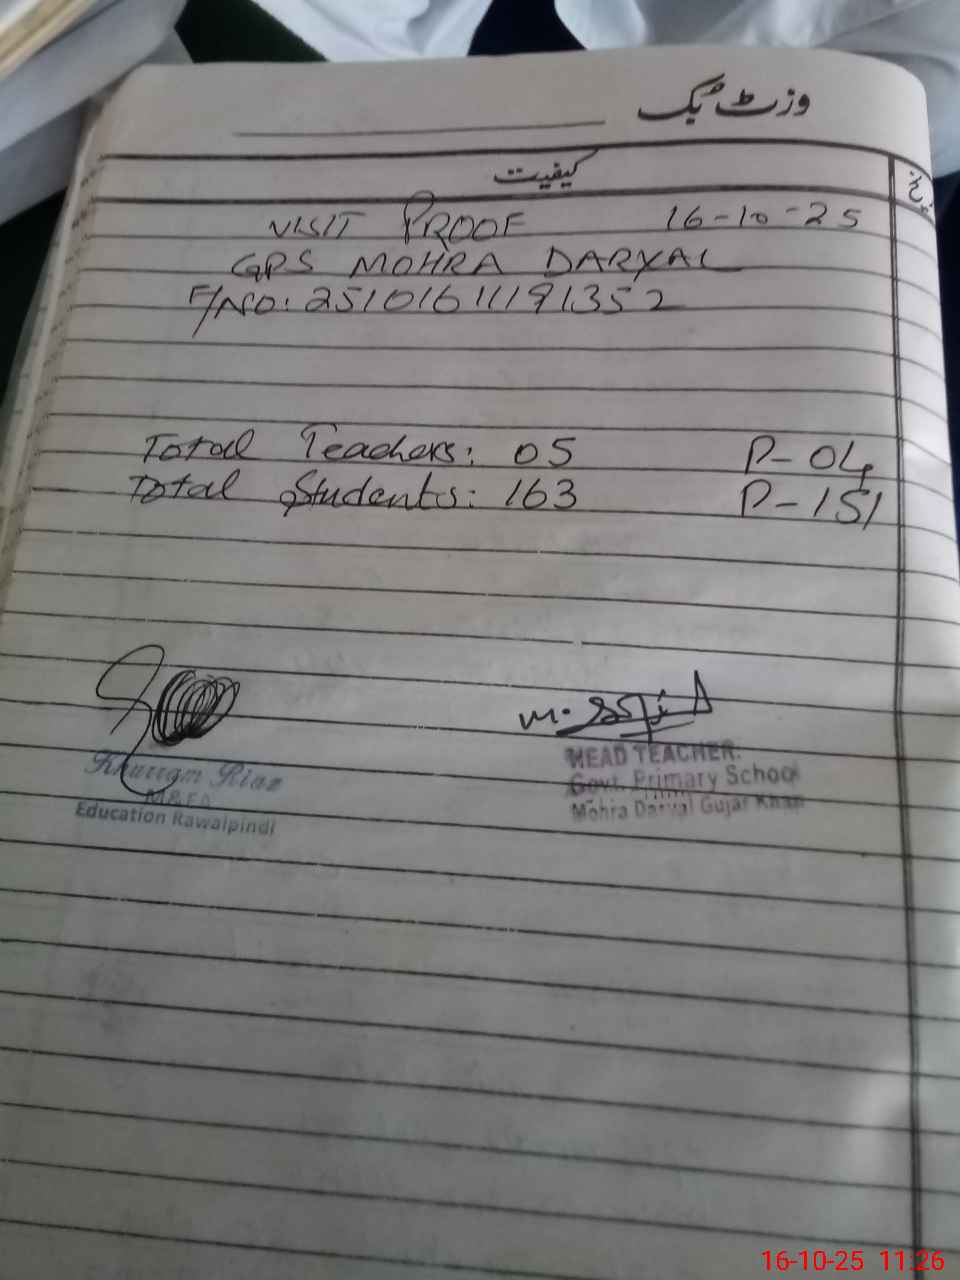 وزٹ بک
کیفیت
VISIT PROOF 16-10-25
GPS MOHRA DARYAL
F/NO: 25101611191352
Total Teachers: 05 P-04
Total Students: 163 P-151
Khurram Riaz
M.& E.A
Education Rawalpindi
M. Sajid
HEAD TEACHER
Govt. Primary School
Mohra Daryal Gujar Khan
16-10-25 11:26